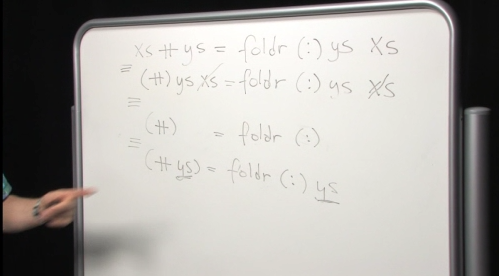 xs ++ ys = foldr (:) ys xs
≡ (++) ys xs = foldr (:) ys xs
≡
(++) = foldr (:)
≡ (++ ys) = foldr (:) ys